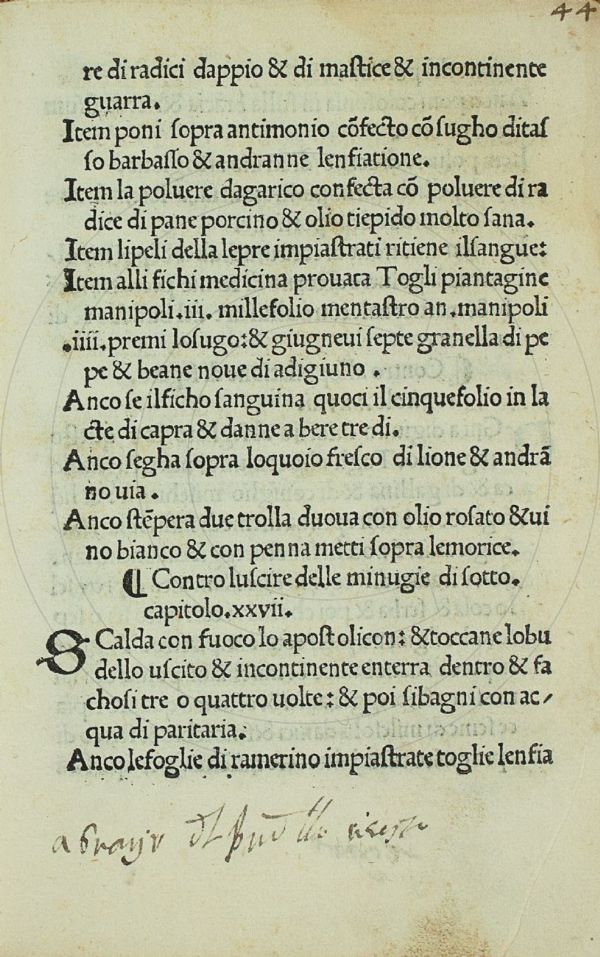 44
re di radici dappio & di maſtice & incontinente
guarra.
Item poni ſopra antimonio cõfecto cõ ſugho ditaſ
ſo barbaſſo & andranne lenfiatione.
Item la poluere dagarico confecta cõ poluere di ra
dice di pane porcino & olio tiepido molto ſana.
Item lipeli della lepre impiaſtrati ritiene ilſangue:
Item alli fichi medicina prouata Togli piantagine
manipoli.iii. millefolio mentaſtro an.manipoli
.iiii.premi loſugo:& giugneui ſepte granella di pe
pe & beane noue di adigiuno .
Anco ſe ilficho ſanguina quoci il cinquefolio in la
cte di capra & danne a bere tre di.
Anco ſegha ſopra loquoio freſco di lione & andrã
no uia .
Anco ſtẽpera due trolla duoua con olio roſato & ui
no bianco & con penna metti ſopra lemorice.
¶ Contro luſcire delle minugie di ſotto.
capitolo.xxvii.
SCalda con fuoco lo apoſtolicon: & toccane lobu
dello uſcito & incontinente enterra dentro & fa
choſi tre o quattro uolte: & poi ſibagni con ac⸗
qua di paritaria.
Anco lefoglie di ramerino impiaſtrate toglie lenfia